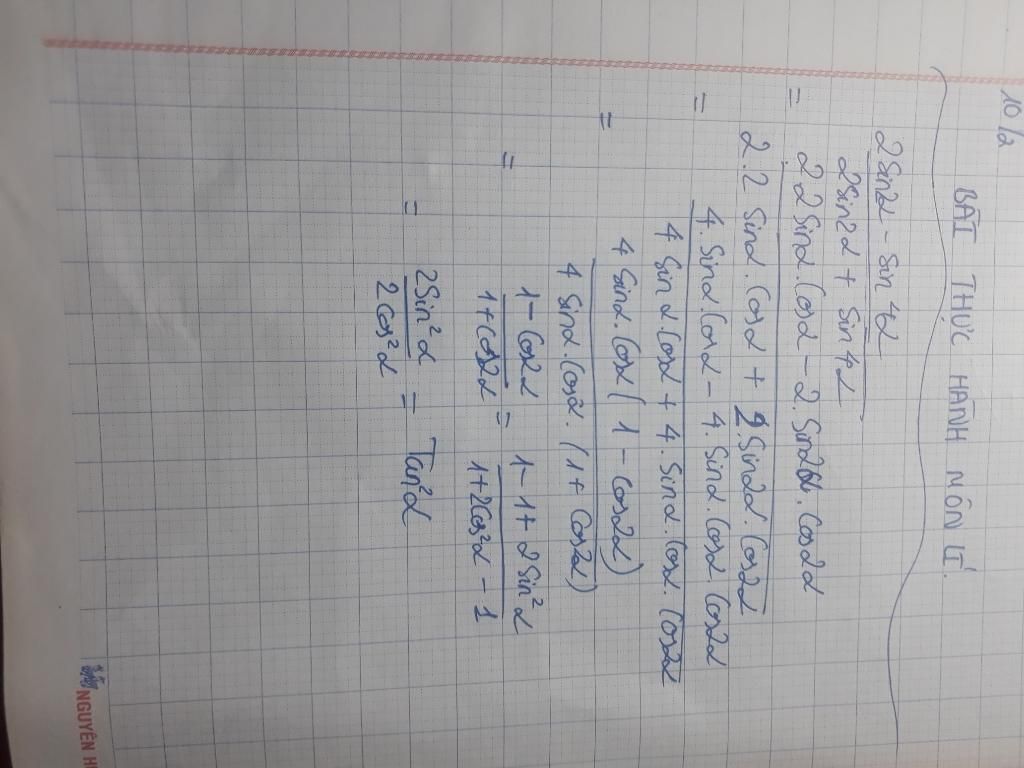 10/2
BÀI THỰC HÀNH MÔN LÍ.
2Sin2α - Sin 4α
2Sin2α + Sin4α
= 2 2Sinα. Cosα - 2. Sin2α. Cos2α
2.2 Sinα. Cosα + 2. Sin2α. Cos2α
= 4. Sinα. Cosα - 4. Sinα. Cosα. Cos2α
4 Sinα. Cosα + 4. Sinα. Cosα. Cos2α
= 4 Sinα. Cosα (1 - Cos2α)
4 Sinα. Cosα. (1 + Cos2α)
= 1 - Cos2α = 1 - 1 + 2Sin²α
1 + Cos2α 1 + 2Cos²α - 1
= 2Sin²α = Tan²α
2Cos²α